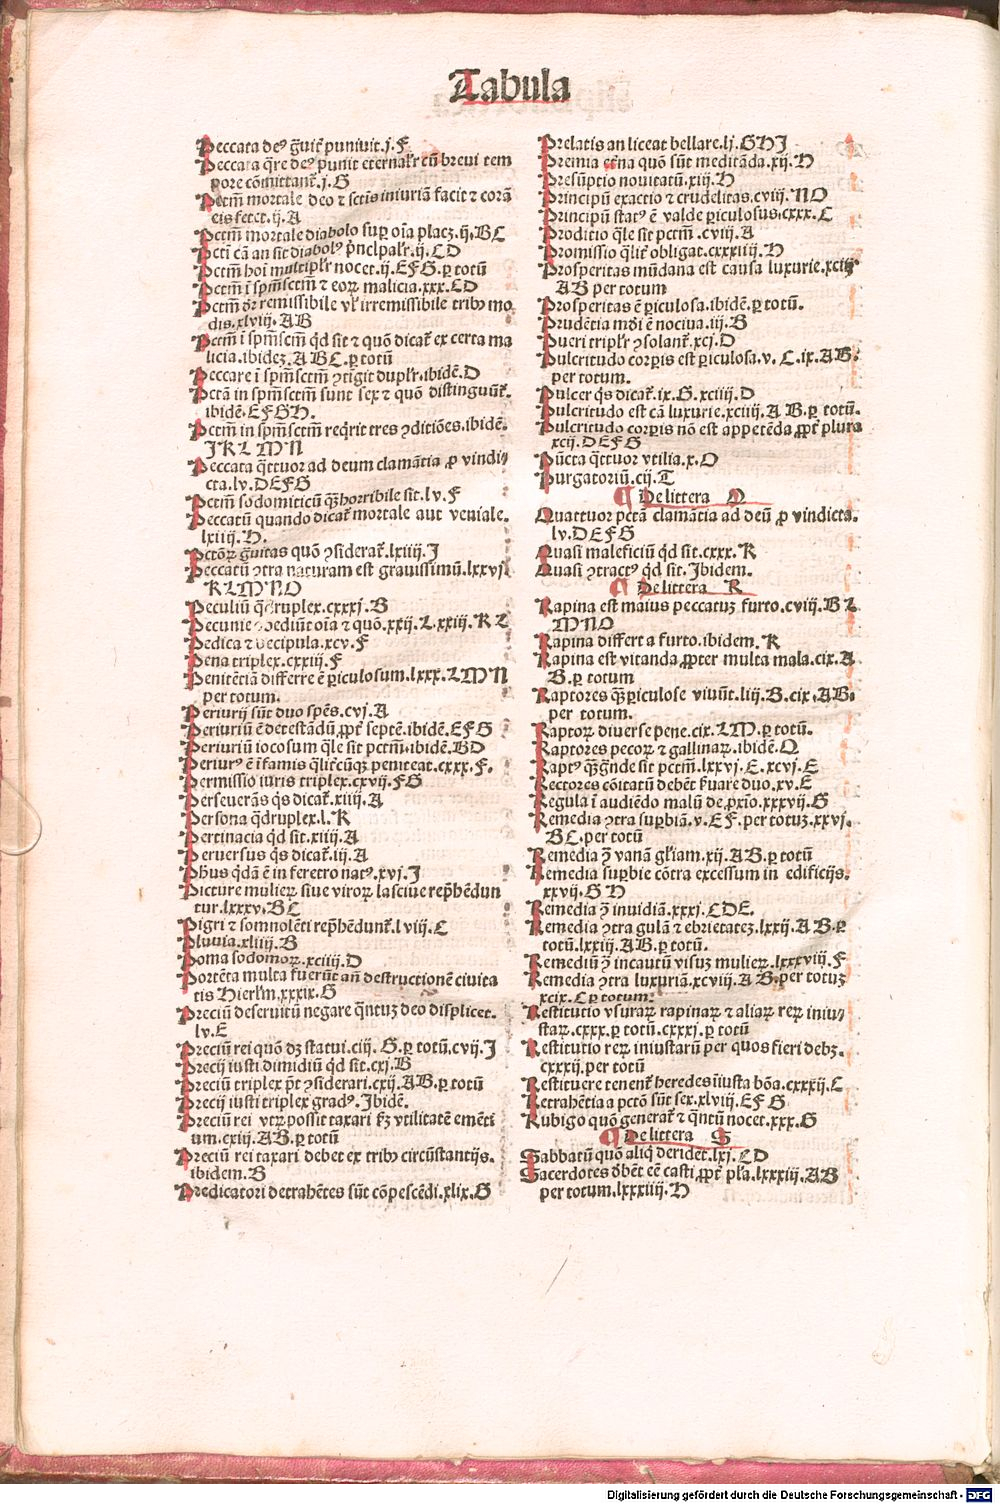 Tabula
Peccata deꝰ g̃uit᷑ puniuit.j.F
Peccata q̃re deꝰ punit eternalr̄ cū breui tem
pore cōmittant᷑.j.G
Pctm̄ mortale deo ⁊ sctīs iniuriā facit ⁊ corā
eis fetet.ij.A
Pctm̄ mortale diabolo suꝑ oīa placꝫ.ij.BC
Pctī cā an sit diabolꝰ p̄ncipalr̄.ij.CD
Pctm̄ hoī multiplr̄ nocet.ij.EFG.ꝑ totū
Pctm̄ ī spm̄sctm̄ ⁊ eoꝝ malicia.xxx.CD
Pctm̄ dr̄ remissibile vl̄ irremissibile tribꝰ mo
dis.xlviij.AB
Pctm̄ ī spm̄sctm̄ qd̄ sit ⁊ quō dicat᷑ ex certa ma
licia.ibideꝫ.ABC.ꝑ totū
Peccare ī spm̄sctm̄ ꝯtigit duplr̄.ibidē.D
Pctā in spm̄sctm̄ sunt sex ⁊ quō distinguūt᷑.
ibidē.EFGH.
Pctm̄ in spm̄sctm̄ req̄rit tres ꝯditiōes.ibidē.
IKLMN
Peccata q̄ttuor ad deum clamātia ꝓ vindi⸗
cta.lv.DEFG
Pctm̄ sodomiticū q̄ꝫ horribile sit.lv.F
Peccatū quando dicat᷑ mortale aut veniale.
lxiiij.H.
Pctōꝝ g̃uitas quō ꝯsiderat᷑.lxiiij.I
Peccatū ꝯtra naturam est grauissimū.lxxvj.
KLMNO
Peculiū q̄druplex.cxxxj.B
Pecunie obediūt oīa ⁊ quō.xxij.L.xxiij.KL
Pedica ⁊ decipula.xcv.F
Pena triplex.cxxiij.F
Penitētiā differre ē ꝑiculosum.lxxx.LMN
per totum.
Periurij sūt duo spēs.cvj.A
Periuriū ē detestādū ꝓpt᷑ septē.ibidē.EFG
Periuriū iocosum q̄le sit pctm̄.ibidē.BD
Periurꝰ ē īfamis q̄lit᷑cūqꝫ peniteat.cxxx.F.
Permissio iuris triplex.cxvij.FG
Perseuerās q̄s dicat᷑.xiiij.A
Persona q̄druplex.l.K
Pertinacia qd̄ sit.xiiij.A
Peruersus q̄s dicat᷑.iij.A
Phūs q̄dā ē in feretro natꝰ.xvj.I
Picture mulieꝝ siue viroꝝ lasciue rep̄hēdun
tur.lxxxv.BC
Pigri ⁊ somnolēti rep̄hēdunt᷑.lviij.C
Pluuia.xliiij.B
Poma sodomoꝝ.xciiij.D
Portēta multa fuerūt an̄ destructionē ciuita
tis Hierlm̄.xxxix.G
Preciū deseruitū negare q̄ntuꝫ deo displicet.
lv.E
Preciū rei quō dꝫ statui.ciij.G.ꝑ totū.cvij.I
Precij iusti dimidiū qd̄ sit.cxj.B
Preciū triplex pōt ꝯsiderari.cxij.AB.ꝑ totū
Precij iusti triplex gradꝰ.Ibidē.
Preciū rei vtꝝ possit taxari ẜꝫ vtilitatē emēti
um.cxiij.AB.ꝑ totū
Preciū rei taxari debet ex tribꝰ circūstantijs.
ibidem.B
Predicatori detrahētes sūt cōpescēdi.xlix.G
Prelatis an liceat bellare.lj.GHI
Premia etn̄a quō sūt meditāda.xij.H
Presūptio nouitatū.xiij.H
Principū exactio ⁊ crudelitas.cviij.NO
Principū statꝰ ē valde ꝑiculosus.cxxx.C
Proditio q̄le sit pctm̄.cviij.A
Promissio q̄lit᷑ obligat.cxxxiij.H
Prosperitas mūdana est causa luxurie.xciij
AB per totum
Prosperitas ē ꝑiculosa.ibidē.ꝑ totū.
Prudētia mūdi ē nociua.iij.B
Pueri triplr̄ ꝯsolant᷑.xcj.D
Pulcritudo corꝑis est ꝑiculosa.v.C.ix.AB.
per totum.
Pulcer q̄s dicat᷑.ix.G.xciiij.D
Pulcritudo est cā luxurie.xciiij.AB.ꝑ totū.
Pulcritudo corꝑis nō est appetēda ꝓpt᷑ plura
xcij.DEFG
Pūcta q̄ttuor vtilia.x.O
Purgatoriū.cij.T
¶ De littera Q
Quattuor pctā clamātia ad deū ꝓ vindicta.
lv.DEFG
Quasi maleficiū qd̄ sit.cxxx.K
Quasi ꝯtractꝰ qd̄ sit.Ibidem.
¶ De littera R
Rapina est maius peccatuꝫ furto.cviij.BL
MNO
Rapina differt a furto.ibidem.K
Rapina est vitanda ꝓpter multa mala.cix.A
B.ꝑ totum
Raptores q̄ꝫ ꝑiculose viuūt.liij.B.cix.AB.
per totum.
Raptoꝝ diuerse pene.cix.LM.ꝑ totū.
Raptores pecoꝝ ⁊ gallinaꝝ.ibidē.Q
Raptꝰ q̄ꝫ g̃nde sit pctm̄.lxxvj.E.xcvj.E
Rectores cōitatū debēt ẜuare duo.xv.E
Regula ī audiēdo malū de ꝓxīo.xxxvij.G
Remedia ꝯtra suꝑbiā.v.EF.per totuꝫ.xxvj.
BC.per totū
Remedia ꝯ̄ vanā gl̄iam.xij.AB.ꝑ totū
Remedia suꝑbie cōtra excessum in edificijs.
xxvij.GH
Remedia ꝯ̄ inuidiā.xxxj.CDE.
Remedia ꝯtra gulā ⁊ ebrietateꝫ.lxxij.AB.ꝑ
totū.lxxiij.AB.ꝑ totū.
Remediū ꝯ̄ incautū visuꝫ mulieꝝ.lxxxviij.F
Remedia ꝯtra luxuriā.xcviij.AB.per totuꝫ
xcix.C ꝑ totum.
Restitutio vsuraꝝ rapinaꝝ ⁊ aliaꝝ reꝝ iniu⸗
staꝝ.cxxx.ꝑ totū.cxxxj.ꝑ totū
Restitutio reꝝ iniustarū per quos fieri debꝫ.
cxxxij.per totū
Restituere tenent᷑ heredes īiusta bōa.cxxxij.C
Retrahētia a pctō sūt sex.xlviij.EFG
Rubigo quō generat᷑ ⁊ q̄ntū nocet.xxx.G
¶ De littera S
Sabbatū quō aliq̄ derident.lxj.CD
Sacerdotes debēt eē casti ꝓpt᷑ pl̄a.lxxxiij.AB
per totum.lxxxiiij.H
Digitalisierung gefördert durch die Deutsche Forschungsgemeinschaft - DFG